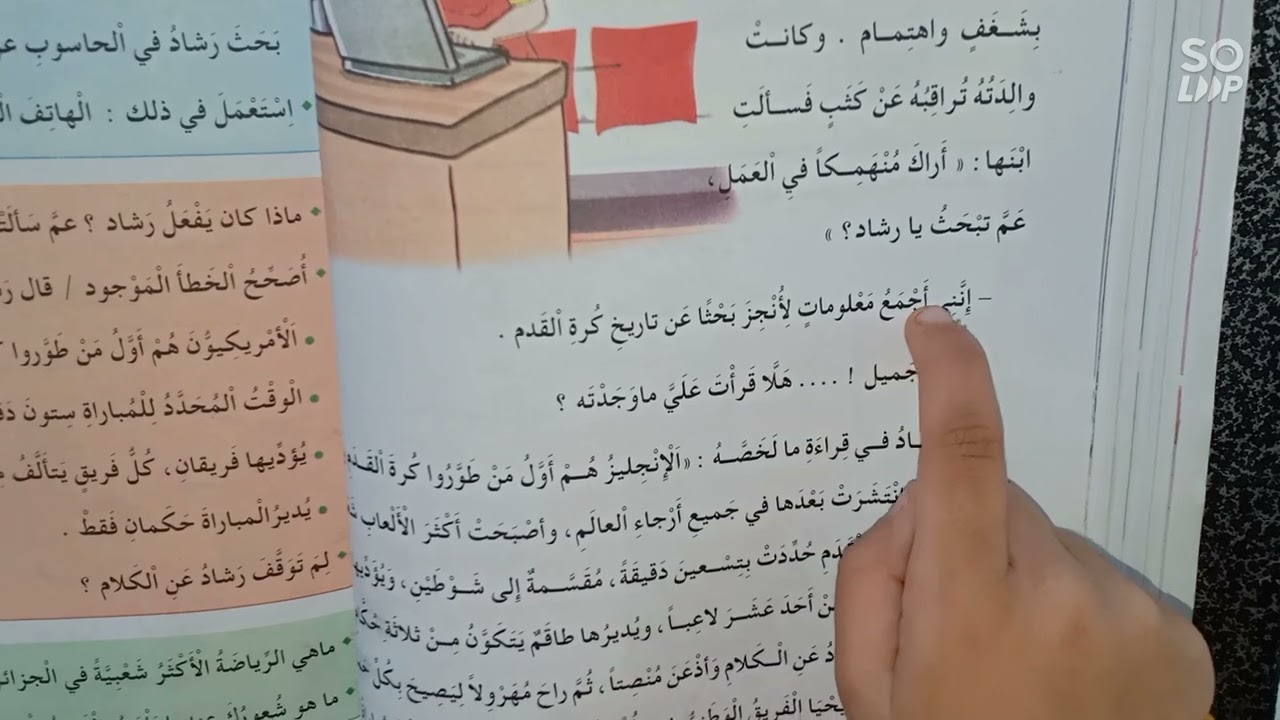 بِشَغَفٍ واهتِمام . وكانتْ
والِدَتُهُ تُراقِبُهُ عَنْ كَثَبٍ فَسألَتِ
ابْنَها : « أَراكَ مُنْهَمِكاً فيِ الْعَمَلِ،
عَمَّ تبْحَثُ يا رشاد؟ »
– إنَّنِي أَجْمَعُ مَعْلوماتٍ لِأُنْجِزَ بَحْثًا عَن تاريخِ كُرةِ الْقَدم .
جَميل ! .... هَلَّا قَرأْتَ عَلَيَّ ماوَجَدْتَه ؟
في قِراءَةِ ما لَخَصَّهُ : «اَلْإنْجليزُ هُمْ أَوَّلُ مَنْ طَوَّرُوا كُرةَ الْقَدَمِ
انْتَشَرَتْ بَعْدَها في جَميعِ أَرْجاءِ الْعالَمِ، وأصْبَحَتْ أَكْثَرَ الْأَلْعابِ
حُدِّدَتْ بِتِسْعينَ دَقيقةً، مُقَسَّمةٌ إلى شَوْطَيْنِ،
أَحَدَ عَشَرَ لاعِباً، ويُديرُها طاقَمٌ يَتَكَوَّنُ مِنْ ثلاثَةِ
عَنِ الْكَلامِ وَأذْعَنَ مُنْصِتاً، ثُمَّ راحَ مُهَرْوِلاً لِيَصيحَ بِكُلِّ
الْفَريقُ
بَحَثَ رَشادُ في الْحاسوبِ
اِسْتَعْمَلَ في ذلك : الْهاتِفَ
ماذا كان يَفْعَلُ رَشاد ؟ عمَّ
أُصَحِّحُ الْخَطأَ الْمَوْجود / قال
اَلْأَمْريكِيوُّنَ هُمْ أوَّلُ مَنْ طَوَّروا
الْوقْتُ الْمُحَدَّدُ لِلْمُباراةِ ستونَ
يُؤدِّيها فَريقانِ، كُلُّ فَريقٍ يَتألَّفُ
يُديرُ المباراةَ حَكَمانِ فَقطْ .
لِمَ تَوَقَّفَ رَشادُ عَنِ الْكَلام ؟
ماهي الرِّياضَةُ الْأَكْثَرُ شَعْبِيَّةً في
ما هو شُعورُكَ
SOLOOP